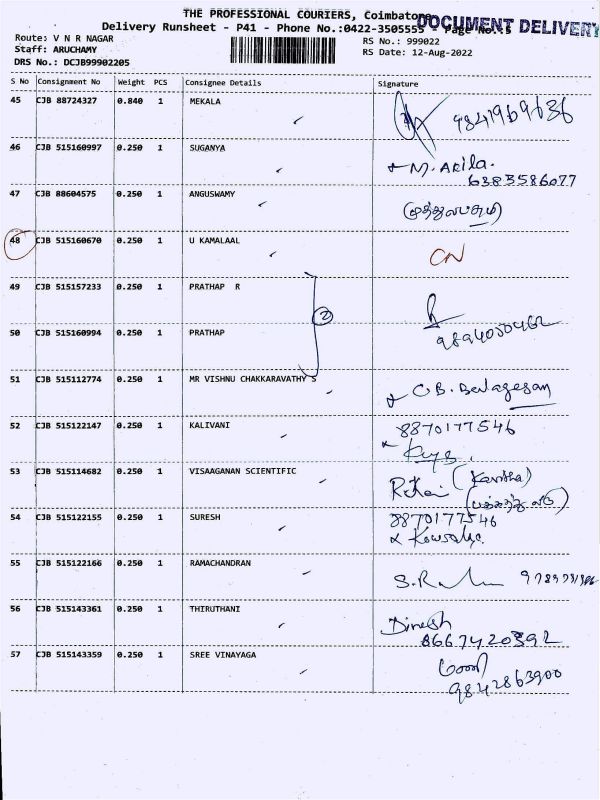 THE PROFESSIONAL COURIERS, Coimbatore
DOCUMENT DELIVERY
Delivery Runsheet - P41 - Phone No.:0422-3505555 - Page No.:5
Route: V N R NAGAR
RS No.: 999022
Staff: ARUCHAMY
RS Date: 12-Aug-2022
DRS No.: DCJB99902205
S No Consignment No Weight PCS Consignee Details Signature
45 CJB 88724327 0.840 1 MEKALA 9841969636
46 CJB 515160997 0.250 1 SUGANYA M. Akila.
6383586077
47 CJB 88604575 0.250 1 ANGUSWAMY
48 CJB 515160670 0.250 1 U KAMALAAL CN
49 CJB 515157233 0.250 1 PRATHAP R
2
50 CJB 515160994 0.250 1 PRATHAP
51 CJB 515112774 0.250 1 MR VISHNU CHAKKARAVATHY S
52 CJB 515122147 0.250 1 KALIVANI 8870177546
53 CJB 515114682 0.250 1 VISAAGANAN SCIENTIFIC (Kavitha)
54 CJB 515122155 0.250 1 SURESH 8870177546
55 CJB 515122166 0.250 1 RAMACHANDRAN
56 CJB 515143361 0.250 1 THIRUTHANI Dinesh
8667420392
57 CJB 515143359 0.250 1 SREE VINAYAGA மணி
9842863900